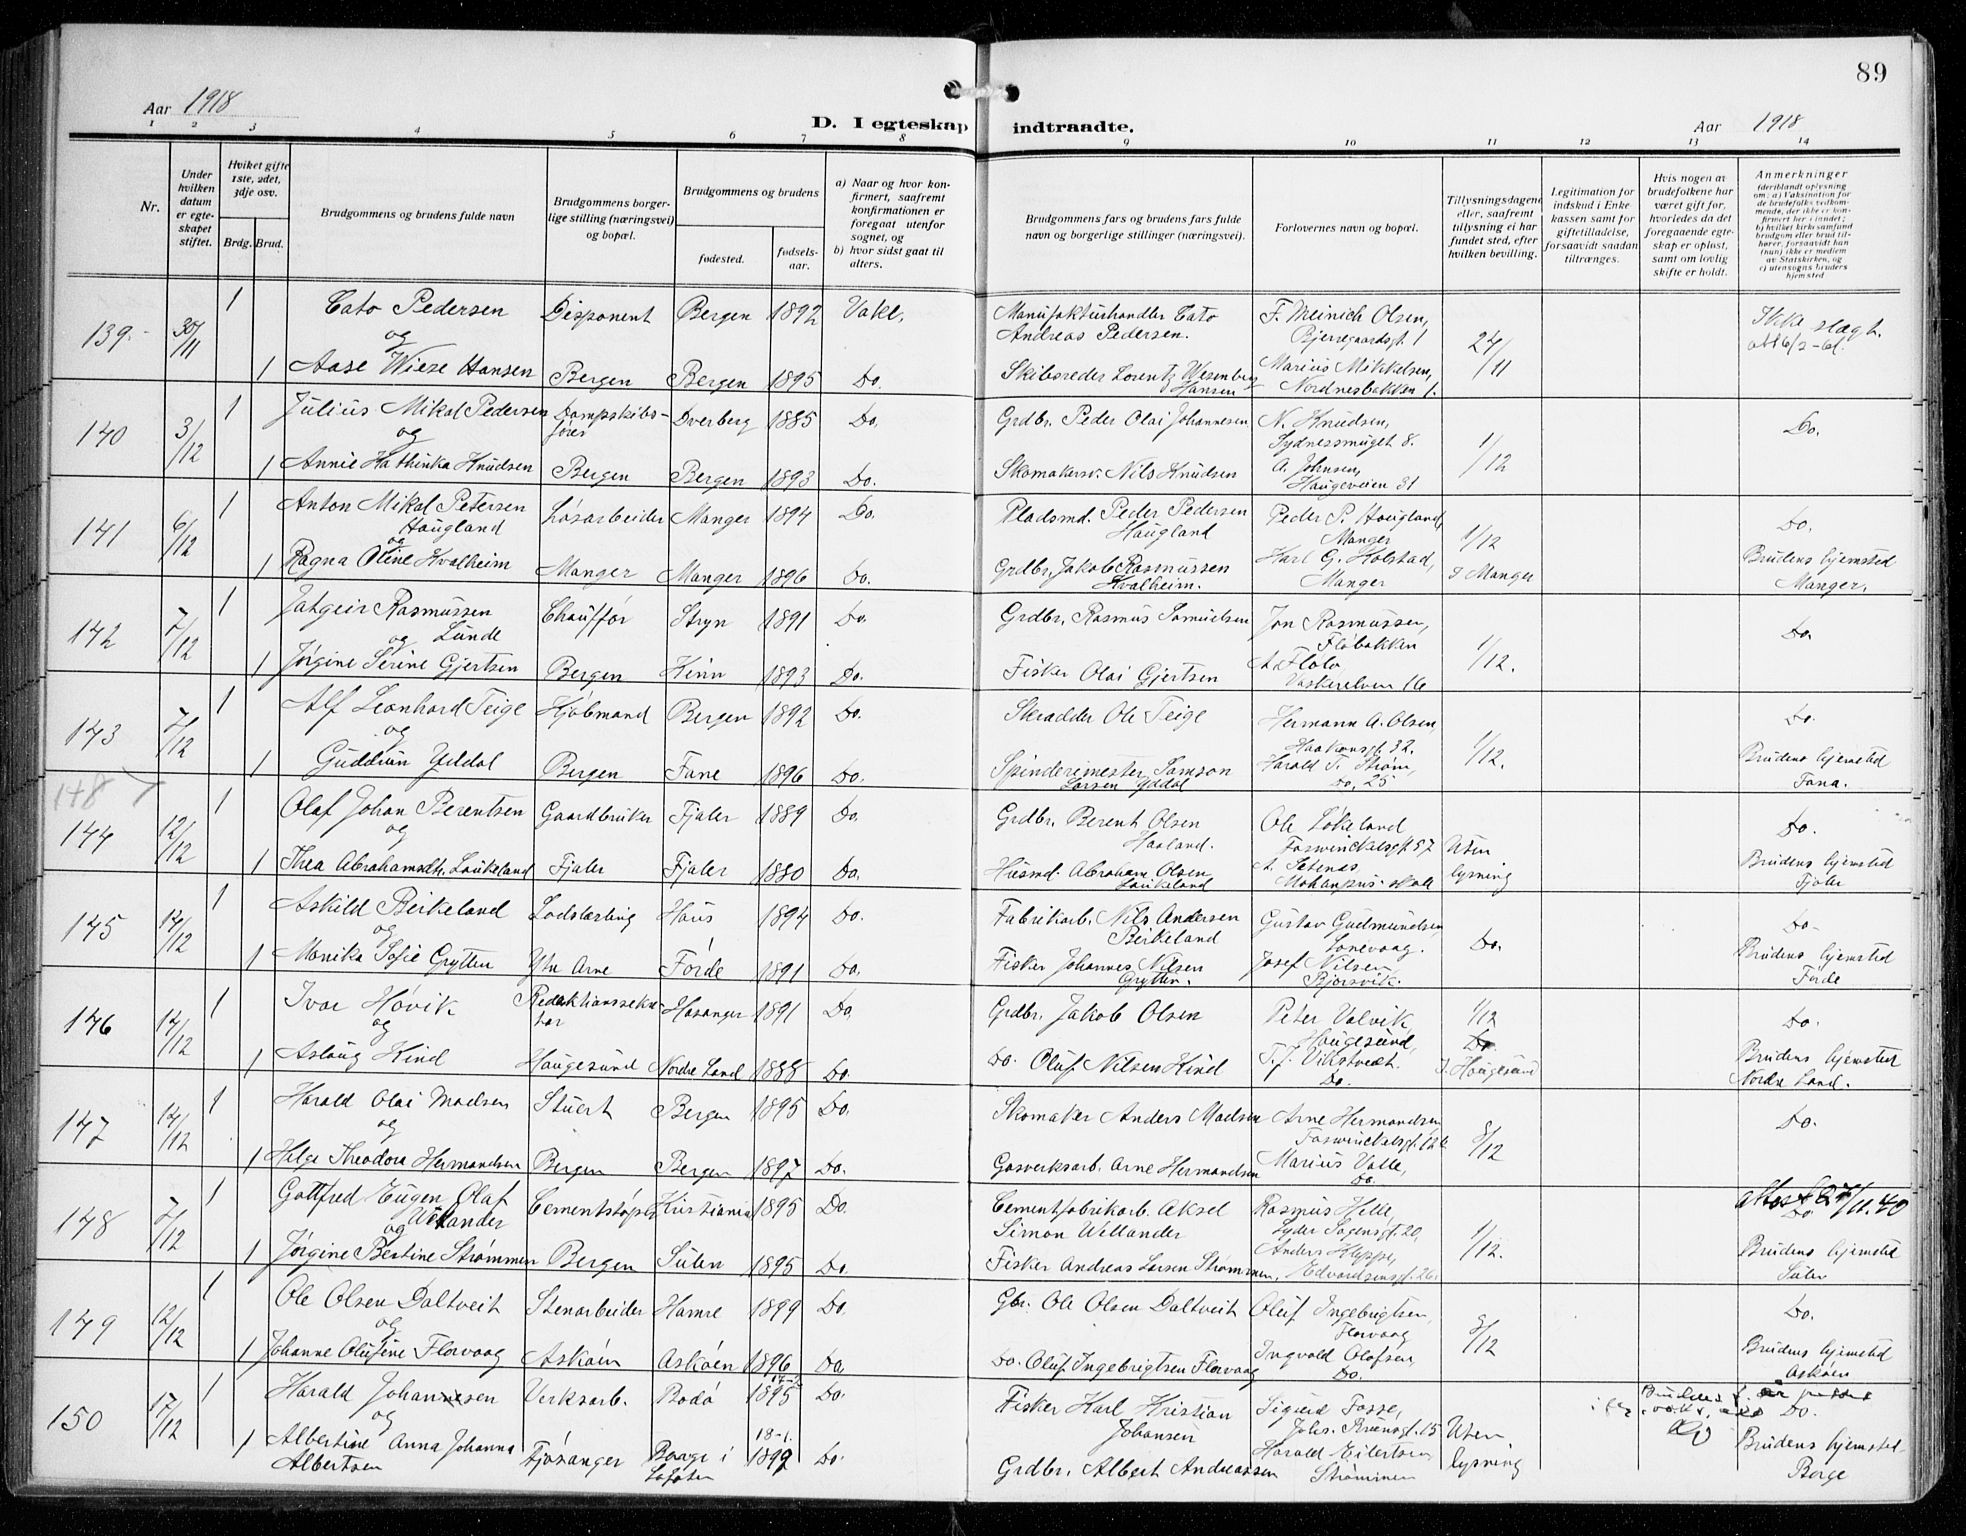 89
Aar 1918
D. I egteskap indtraadte.
Aar 1918
1 2 3 4 5 6 7 8 9 10 11 12 13 14
Nr.
Under hvilken datum er egteskapet stiftet.
Hvilket gifte 1ste, 2det, 3dje osv.
Brdg. Brud.
Brudgommens og brudens fulde navn
Brudgommens borgerlige stilling (næringsvei) og bopæl.
Brudgommens og brudens
fødested.
fødselsaar.
a) Naar og hvor konfirmert, saafremt konfirmationen er foregaat utenfor sognet, og
b) hvor sidst gaat til alters.
Brudgommens fars og brudens fars fulde navn og borgerlige stillinger (næringsvei).
Forlovernes navn og bopæl.
Tillysningsdagene eller, saafremt tillysning ei har fundet sted, efter hvilken bevilling.
Legitimation for indskud i Enkekassen samt for giftetilladelse, forsaavidt saadan tiltrænges.
Hvis nogen av brudefolkene har været gift før, hvorledes da det foregaaende egteskap er opløst, samt om lovlig skifte er holdt.
Anmerkninger
(deriblandt oplysning om: a) Vaksination for de brudefolks vedkommende, der ikke er konfirmert her i landet; b) hvilket kirkesamfund brudgom eller brud tilhører, forsaavidt han (hun) ikke er medlem av Statskirken, og c) utensogns bruders hjemsted
139 30/11 1 Cato Pedersen Disponent Bergen 1892 Vakl. Manufakturhandler Cato Andreas Pedersen. F. Meinich Olsen, Bjerregaardsgt. 1 24/11 Ikke slegt.
og
1 Aase Wiese Hansen Bergen Bergen 1895 Do. Skibsreder Lorentz Wesenberg Hansen Marius Mikkelsen, Nordnesbakken 1.
140 3/12 1 Julius Mikal Pedersen Dampskibsfører Dverberg 1885 Do. Grdbr. Peder Olai Johannesen N. Knudsen, Sydnessmuget 8. 1/12 Do.
og
1 Annie Kathinka Knudsen Bergen Bergen 1893 Do. Skomakersv. Nils Knudsen A. Johnsen, Haugeveien 31
141 6/12 1 Anton Mikal Petersen Haugland Løsarbeider Manger 1894 Do. Pladsmd. Peder Pedersen Haugland Peder P. Haugland, Manger 1/12 Do.
og
1 Ragna Oline Hvalheim Manger Manger 1896 Do. Grdbr. Jakob Rasmussen Kvalheim. Karl G. Holstad, Manger I Manger Brudens hjemsted Manger.
142 7/12 1 Jatgeir Rasmussen Lunde Chauffør Stryn 1891 Do. Grdbr. Rasmus Samuelsen Jon Rasmussen, Fløbakken 1/12. Do.
og
1 Jørgine Serine Gjertsen Bergen Kinn 1893 Do. Fisker Olai Gjertsen A. Flølo, Vaskerelven 16
143 7/12 1 Alf Leonhard Teige Kjøbmand Bergen 1892 Do. Skradder Ole Teige Hermann A. Olsen, Haakonsgt. 32. 1/12. Do.
og
1 Guddrun Yddal Bergen Fane 1896 Do. Spinderimester Samson Larsen Yddal Harald T. Strøm, Do. 25 Brudens hjemsted Fana.
148
144 12/12 1 Olaf Johan Berentsen Gaardbruker Fjaler 1889 Do. Grdbr. Berent Olsen Haaland. Ole Løkeland Foswinckelsgt. 57 Uten lysning Do.
og
1 Thea Abrahamsdtr. Laukeland Fjaler Fjaler 1880 Do. Husmd. Abraham Olsen Laukeland Brudens hjemsted Fjaler
145 14/12 1 Askild Birkeland Lodslærling Haus 1894 Do. Fabrikarb. Nils Andersen Birkeland Gustav Gudmundsen, Lonevaag. Do. Do.
og
1 Monika Sofie Grytten Ytr. Arne Førde 1891 Do. Fisker Johannes Nilsen Grytten. Josef Nilsen Bjørsvik. Brudens hjemsted Førde
146 14/12 1 Ivar Høvik Redaktionssekretær Hosanger 1891 Do. Grdbr. Jakob Olsen Peter Valvik, Haugesund, 1/12 Do.
og
1 Aslaug Kind Haugesund Nordre Land 1888 Do. Do. Oluf Nilsen Kind T. J. Vikstvedt. Do. I Haugesund Brudens hjemsted Nordre Land.
147 14/12 1 Harald Olai Madsen Stuert Bergen 1895 Do. Skomaker Anders Madsen Arne Hermandsen, Foswinckelsgt. 12 8/12 Do.
og
1 Helga Theodora Hermandsen Bergen Bergen 1897 Do. Gasverksarb. Arne Hermandsen Marius Valle, Do.
148 7/12 1 Gottfred Eugen Olaf Wellander Cementstøper Kristiania 1895 Do. Cementfabrikarb. Aksel Simon Wellander Rasmus Hille, Lyder Sagensgt. 20, 1/12. attest 27/11.40 Do.
og
1 Jørgine Bertine Strømmen Bergen Sulen 1895 Do. Fisker Andreas Larsen Strømmen, Anders Kleppe, Edvardsensgt. 26. Brudens hjemsted Sulen
149 12/12 1 Ole Olsen Daltveit Stenarbeider Hamre 1899 Do. Gbr. Ole Olsen Daltveit Oluf Ingebrigtsen Florvaag 8/12 Do.
og
1 Johanne Olufine Florvaag Askøen Askøen 1896 Do. Do. Oluf Ingebrigtsen Florvaag Ingvald Olafsen, Do. Brudens hjemsted Askøen
150 17/12 1 Harald Johansen Verksarb. Bodø 1895 Do. Fisker Karl Kristian Johansen Sigurd Fosse, Johs. Bruunsgt. 15 Uten lysning Do.
og
1 Albertine Anna Johanna Albertsen Fjøsanger Borge i Lofoten 18-1. 1892 Do. Grdbr. Albert Andreassen Harald Eilertsen Strømmen Brudens hjemsted Borge